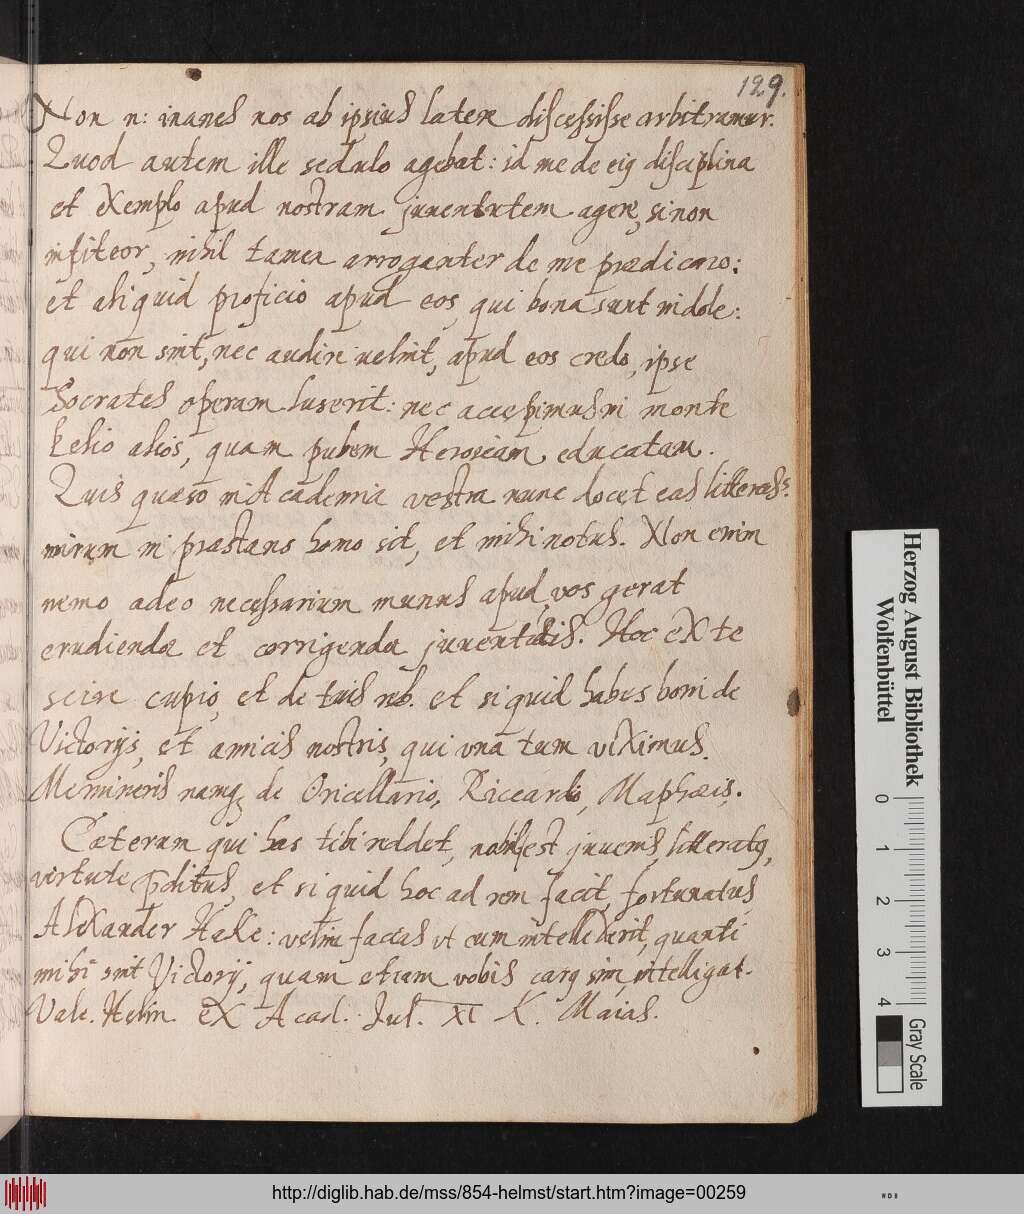 129.
Non n: inanes nos ab ipsius latere discessisse arbitramur.
Quod autem ille sedulo agebat: id me de eius disciplina
et exemplo apud nostram juventutem agere, si non
infiteor, nihil tamen arroganter de me prædicaro:
et aliquid proficio apud eos, qui bona sunt indole:
qui non sint, nec audire velint, apud eos credo, ipse
Socrates operam luserit: nec accepimus in monte
Pelio alios, quam pubem Heroicam educatam.
Quis quæso in Academia vestra nunc docet eas litteras?
mirum ni præstans homo sit, et mihi notus. Non enim
nemo adeo necessarium munus apud vos gerat
erudiendæ et corrigendæ juventutis. Hoc ex te
scire cupio, et de tuis reb. et si quid habes boni de
Victorijs, et amicis nostris, qui una tum viximus.
Memineris namq de Oricellario, Riccardo, Maphæis.
Cæterum qui has tibi reddet, nobilis est juvenis, litteratus,
virtute præditus, et si quid hoc ad rem facit, fortunatus,
Alexander Hake: velim facias ut cum intellexerit, quanti
mihi sint Victorij, quam etiam vobis carus sim, intelligat.
Vale. Helm. ex Acad. Jul. XI K. Maias.
Herzog August Bibliothek
Wolfenbüttel
0 1 2 3 4
Gray Scale
http://diglib.hab.de/mss/854-helmst/start.htm?image=00259
WDB